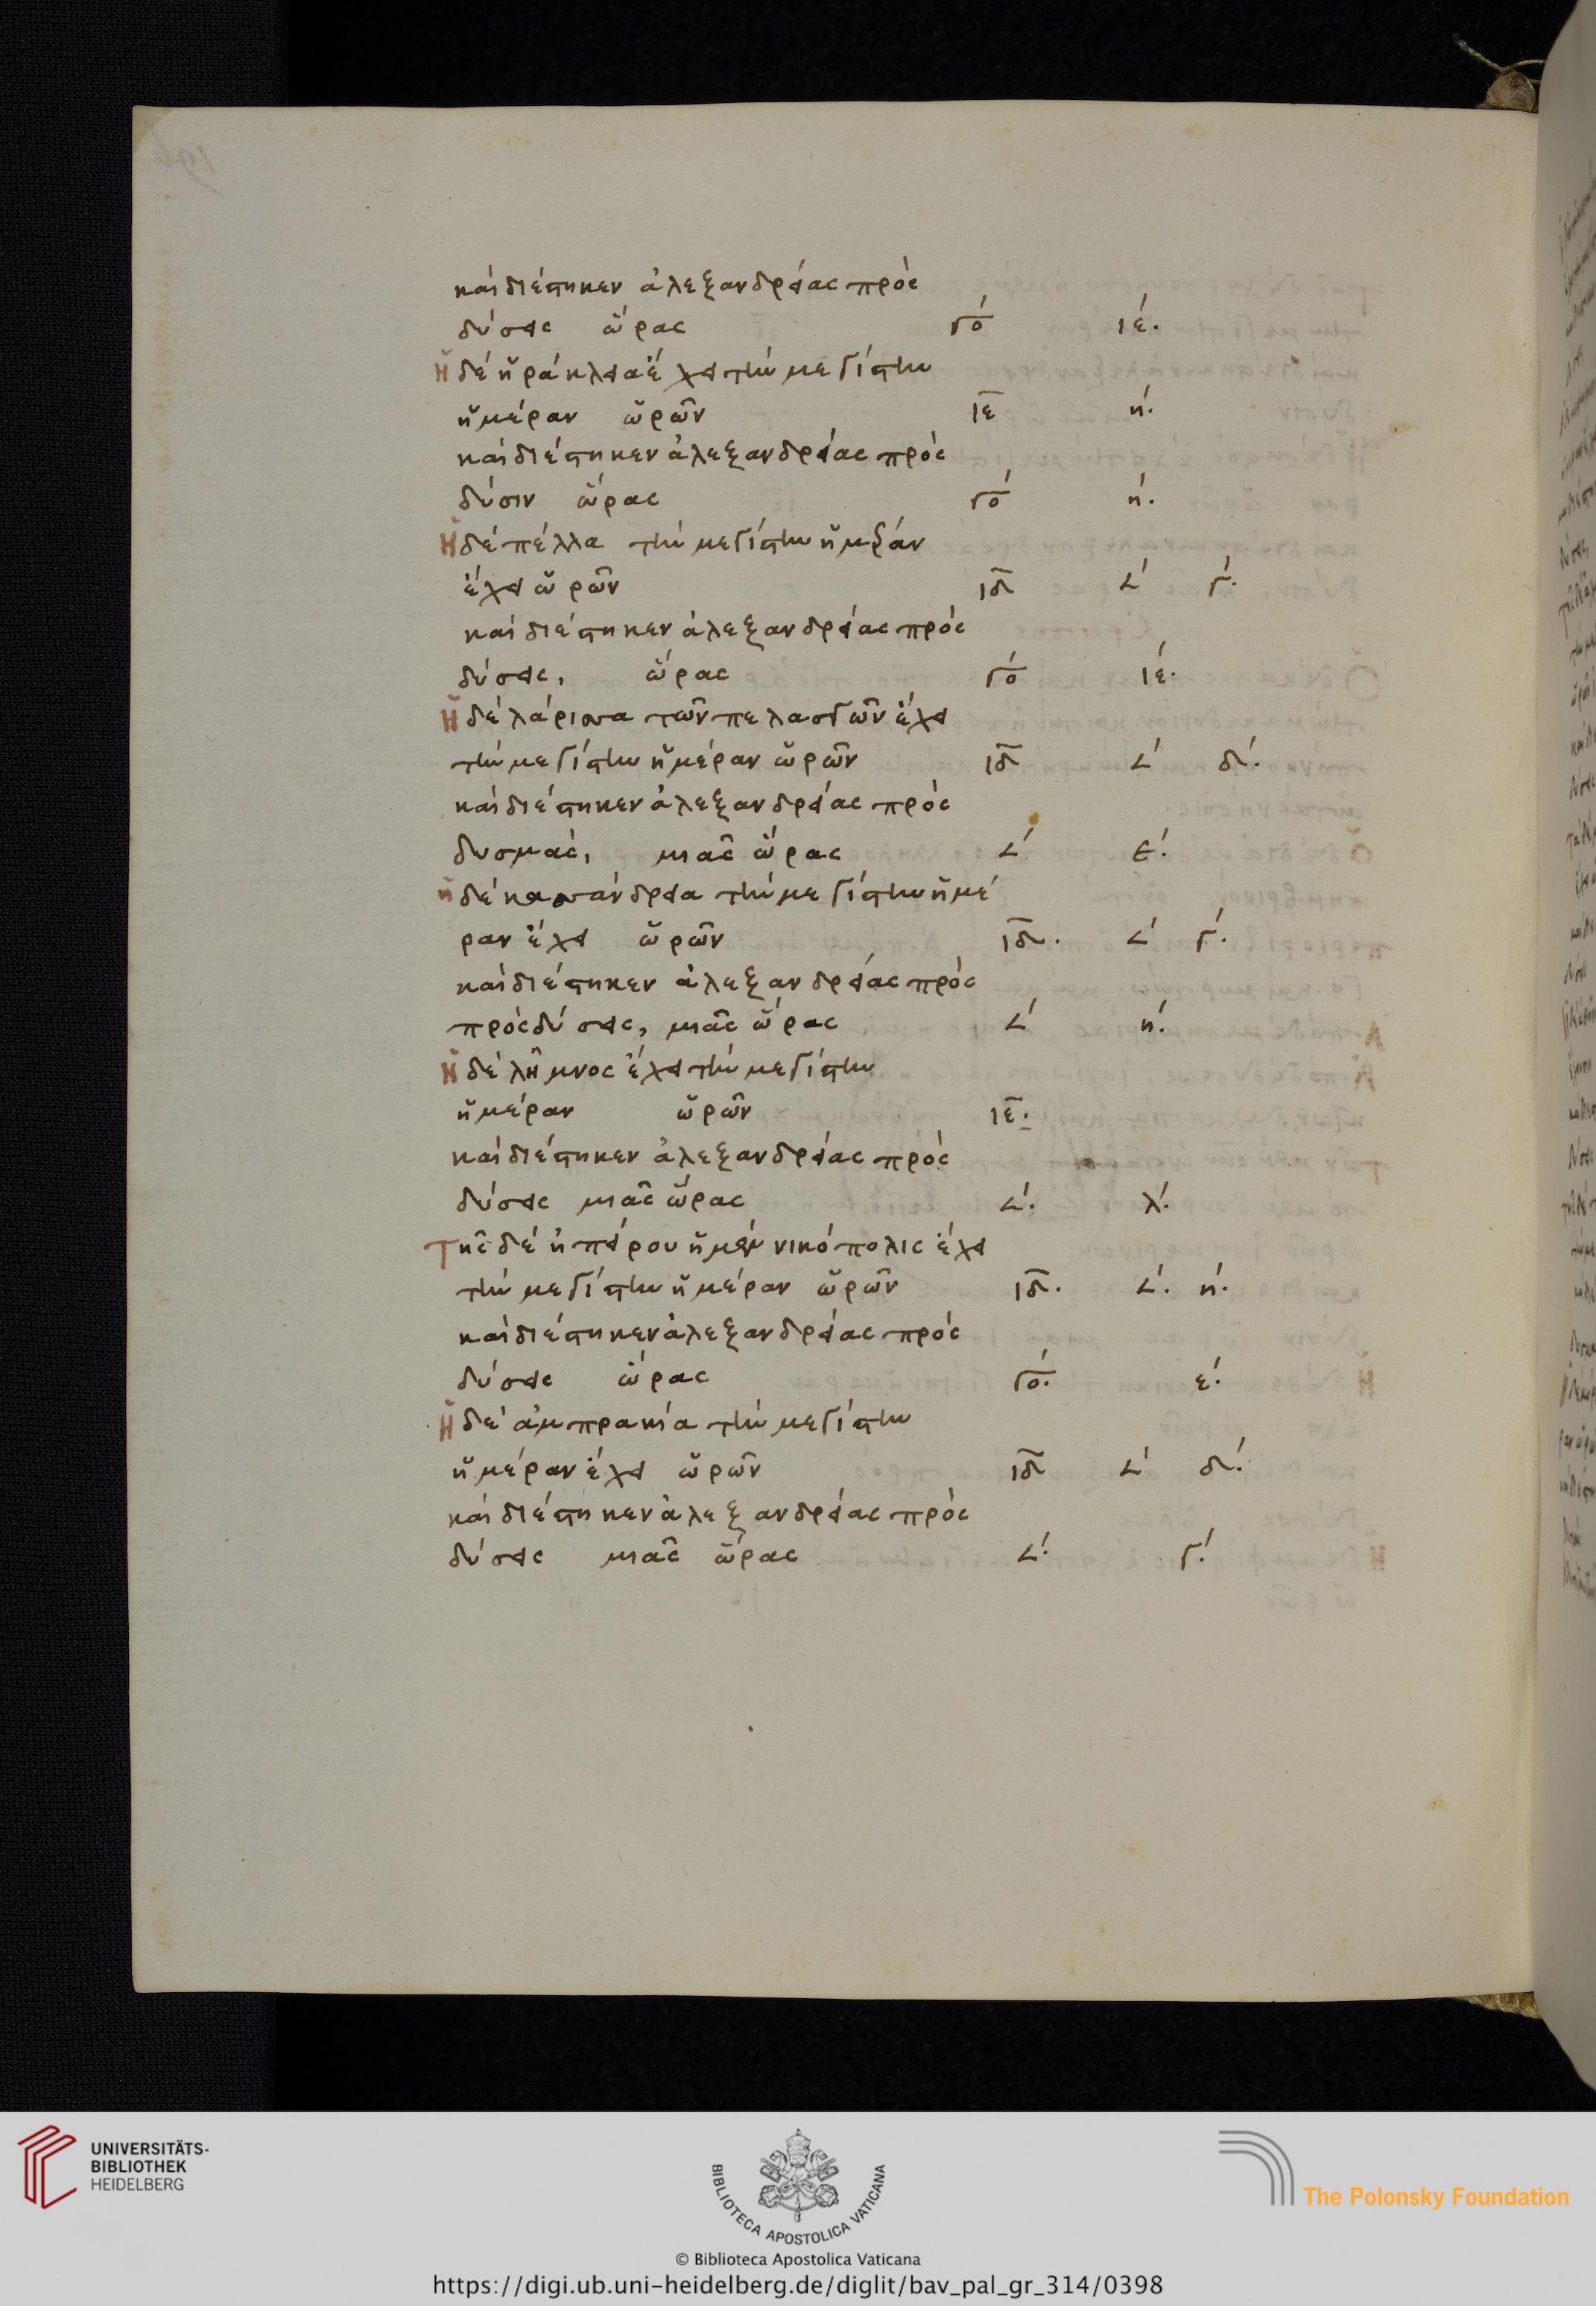 καὶ διέστηκεν ἀλεξανδρείας πρὸς
δύσεις ὥρας γο´ ιε´.
Ἡ δὲ ἡράκλεια ἔχει τὴν μεγίστην
ἡμέραν ὡρῶν ιε η´.
καὶ διέστηκεν ἀλεξανδρείας πρὸς
δύσιν ὥρας γο´ η´.
Ἡ δὲ πέλλα τὴν μεγίστην ἡμέραν
ἔχει ὡρῶν ιδ ∠´ γ´.
καὶ διέστηκεν ἀλεξανδρείας πρὸς
δύσεις, ὥρας γο´ ιε´.
Ἡ δὲ λάρισσα τῶν πελασγῶν ἔχει
τὴν μεγίστην ἡμέραν ὡρῶν ιδ ∠´ δ´.
καὶ διέστηκεν ἀλεξανδρείας πρὸς
δυσμὰς, μιᾶς ὥρας ∠´ ε´.
ἡ δὲ κασσάνδρεια τὴν μεγίστην ἡμέ
ραν ἔχει ὡρῶν ιδ. ∠´ γ´.
καὶ διέστηκεν ἀλεξανδρείας πρὸς
πρὸς δύσεις, μιᾶς ὥρας ∠´ η´.
Ἡ δὲ λῆμνος ἔχει τὴν μεγίστην
ἡμέραν ὡρῶν ιε.
καὶ διέστηκεν ἀλεξανδρείας πρὸς
δύσεις μιᾶς ὥρας ∠´. λ´.
Τῆς δὲ ἠπείρου ἡ μὲν νικόπολις ἔχει
τὴν μεγίστην ἡμέραν ὡρῶν ιδ. ∠´. η´.
καὶ διέστηκεν ἀλεξανδρείας πρὸς
δύσεις ὥρας γο´. ε´.
Ἡ δὲ ἀμπρακία τὴν μεγίστην
ἡμέραν ἔχει ὡρῶν ιδ ∠´ δ´.
καὶ διέστηκεν ἀλεξανδρείας πρὸς
δύσεις μιᾶς ὥρας ∠´. γ´.
UNIVERSITÄTS-
BIBLIOTHEK
HEIDELBERG
BIBLIOTECA APOSTOLICA VATICANA
The Polonsky Foundation
© Biblioteca Apostolica Vaticana
https://digi.ub.uni-heidelberg.de/diglit/bav_pal_gr_314/0398